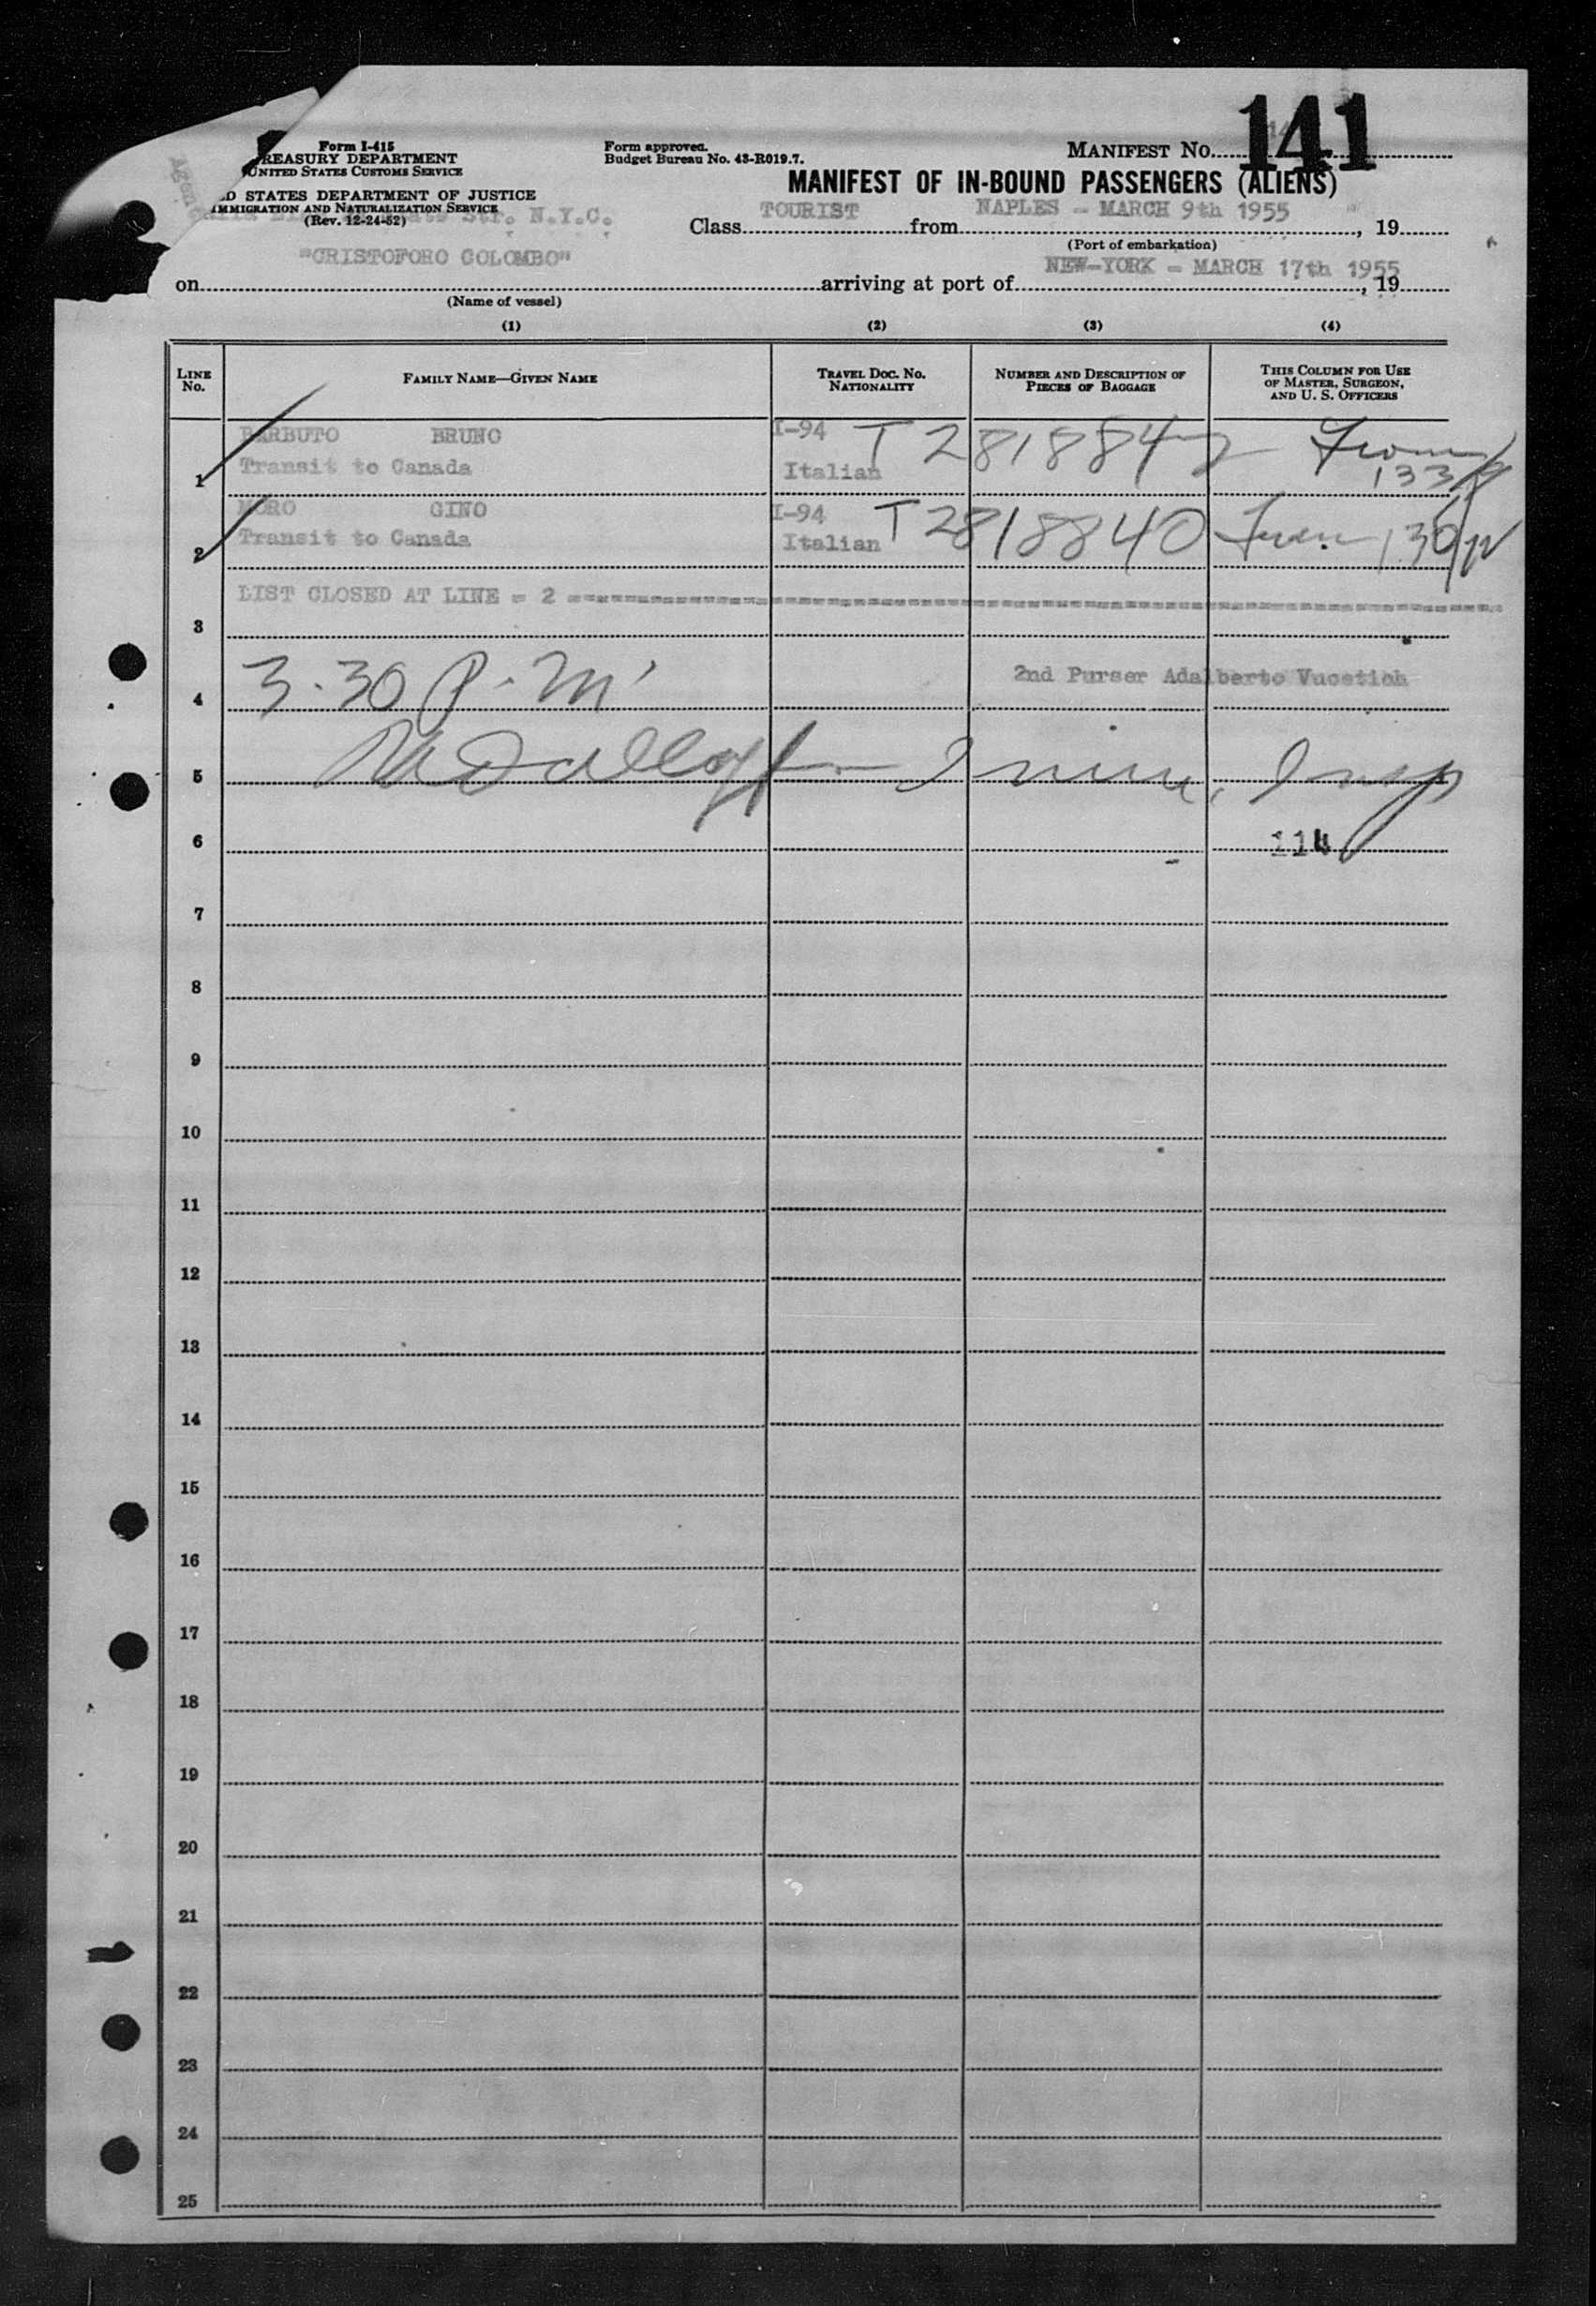 141
Form I-415
TREASURY DEPARTMENT
UNITED STATES CUSTOMS SERVICE
Form approved.
Budget Bureau No. 43-R019.7.
MANIFEST NO.
MANIFEST OF IN-BOUND PASSENGERS (ALIENS)
D STATES DEPARTMENT OF JUSTICE
IMMIGRATION AND NATURALIZATION SERVICE
(Rev. 12-24-52)
Str. N.Y.C.
Class TOURIST from NAPLES - MARCH 9th 1955, 19
(Port of embarkation)
on "CRISTOFORO COLOMBO" arriving at port of NEW-YORK - MARCH 17th 1955, 19
(Name of vessel)
(1) (2) (3) (4)
LINE No. FAMILY NAME—GIVEN NAME TRAVEL DOC. NO. NATIONALITY NUMBER AND DESCRIPTION OF PIECES OF BAGGAGE THIS COLUMN FOR USE OF MASTER, SURGEON, AND U. S. OFFICERS
BARBUTO BRUNO I-94 T 2818842
1 Transit to Canada Italian 133
MORO GINO I-94 T 2818840
2 Transit to Canada Italian 130
LIST CLOSED AT LINE = 2
3
3.30 P.M. 2nd Purser Adalberto Vucetich
4
5
6 114
7
8
9
10
11
12
13
14
15
16
17
18
19
20
21
22
23
24
25